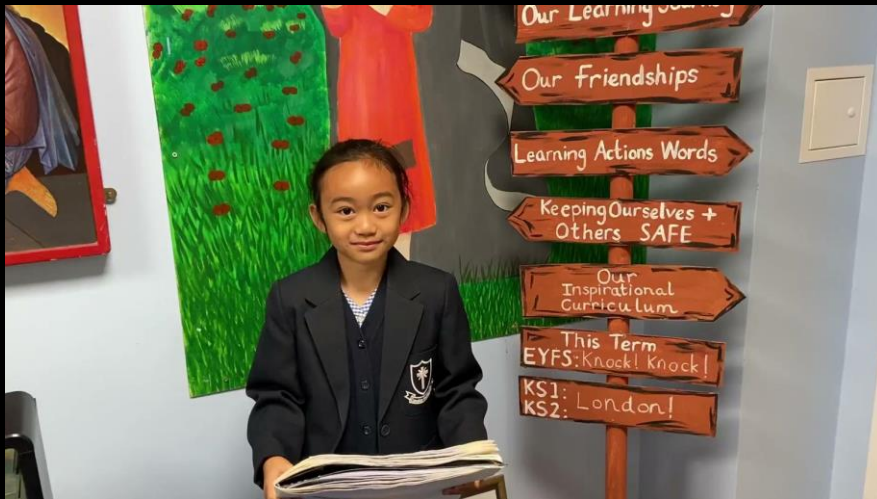 Our Learning Journey
Our Friendships
Learning Actions Words
Keeping Ourselves +
Others SAFE
Our
Inspirational
Curriculum
This Term
EYFS: Knock! Knock!
KS1:
KS2: London!